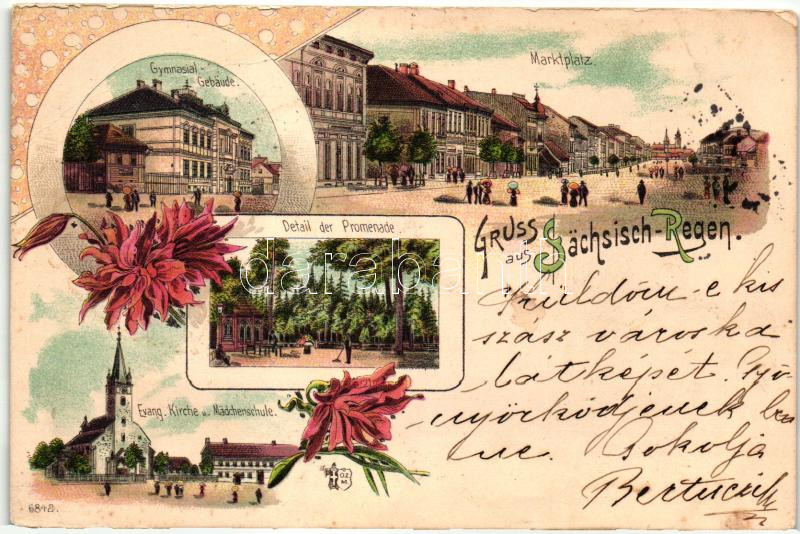 Gymnasial-
Gebäude.
Marktplatz
Detail der Promenade
GRUSS
aus Sächsisch-Regen.
Evang. Kirche u. Mädchenschule.
Küldöm e kis
szász városka
látképét. Gyö-
nyörködjenek ben
ne. Csokolja
O.Z.
M.
684B.
darabanth